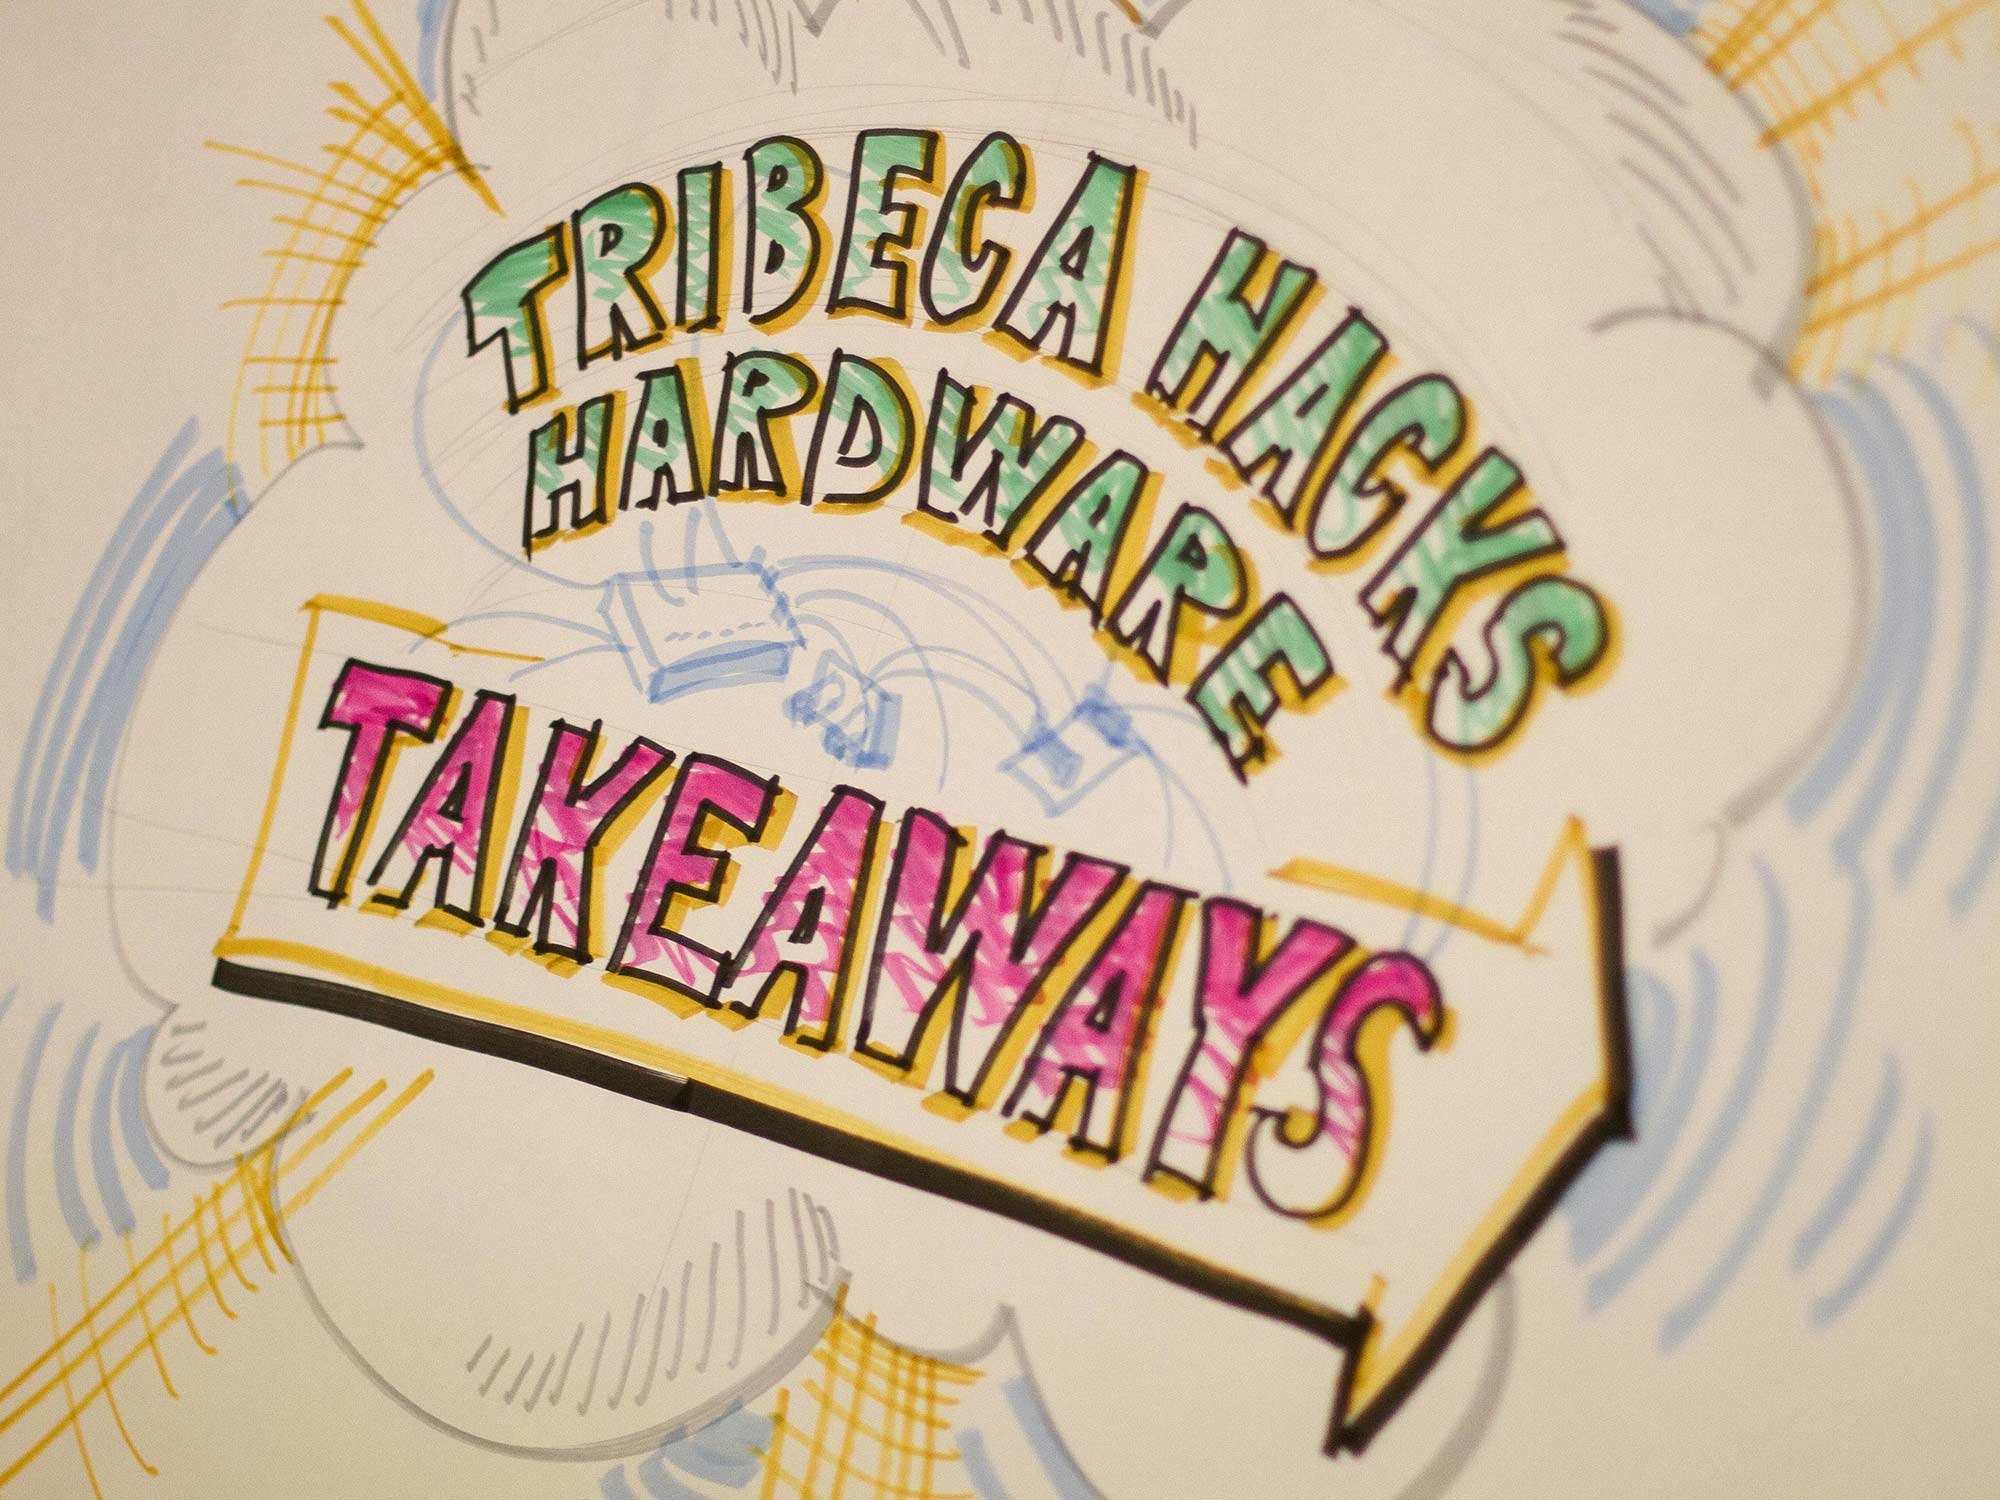 TRIBECA HACKS
HARDWARE
TAKEAWAYS